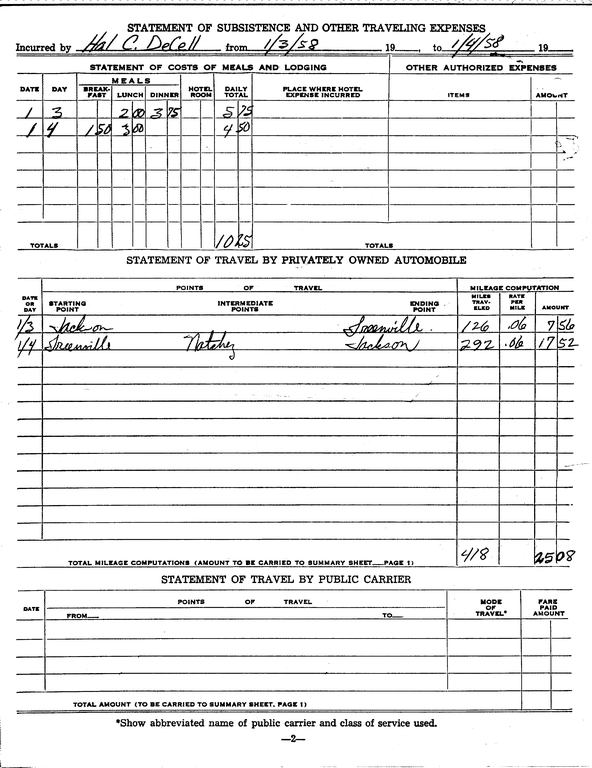 STATEMENT OF SUBSISTENCE AND OTHER TRAVELING EXPENSES
Incurred by Hal C. DeCell from 1/3/58 19 , to 1/4/58 19
STATEMENT OF COSTS OF MEALS AND LODGING OTHER AUTHORIZED EXPENSES
DATE DAY MEALS BREAK-FAST LUNCH DINNER HOTEL ROOM DAILY TOTAL PLACE WHERE HOTEL EXPENSE INCURRED ITEMS AMOUNT
1 3 2 00 3 75 5 75
1 4 1 50 3 00 4 50
TOTALS 10 25 TOTALS
STATEMENT OF TRAVEL BY PRIVATELY OWNED AUTOMOBILE
POINTS OF TRAVEL MILEAGE COMPUTATION
DATE OR DAY STARTING POINT INTERMEDIATE POINTS ENDING POINT MILES TRAV-ELED RATE PER MILE AMOUNT
1/3 Jackson Greenville. 126 .06 7 56
1/4 Greenville Natchez Jackson 292 .06 17 52
TOTAL MILEAGE COMPUTATIONS (AMOUNT TO BE CARRIED TO SUMMARY SHEET—PAGE 1) 418 25 08
STATEMENT OF TRAVEL BY PUBLIC CARRIER
DATE POINTS OF TRAVEL MODE OF TRAVEL* FARE PAID AMOUNT
FROM— TO—
TOTAL AMOUNT (TO BE CARRIED TO SUMMARY SHEET, PAGE 1)
*Show abbreviated name of public carrier and class of service used.
—2—